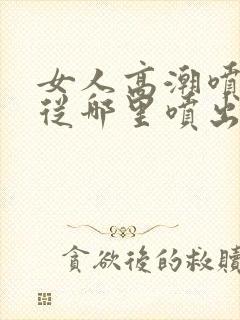 女人高潮噴
從哪里噴出
貪欲後的救贖